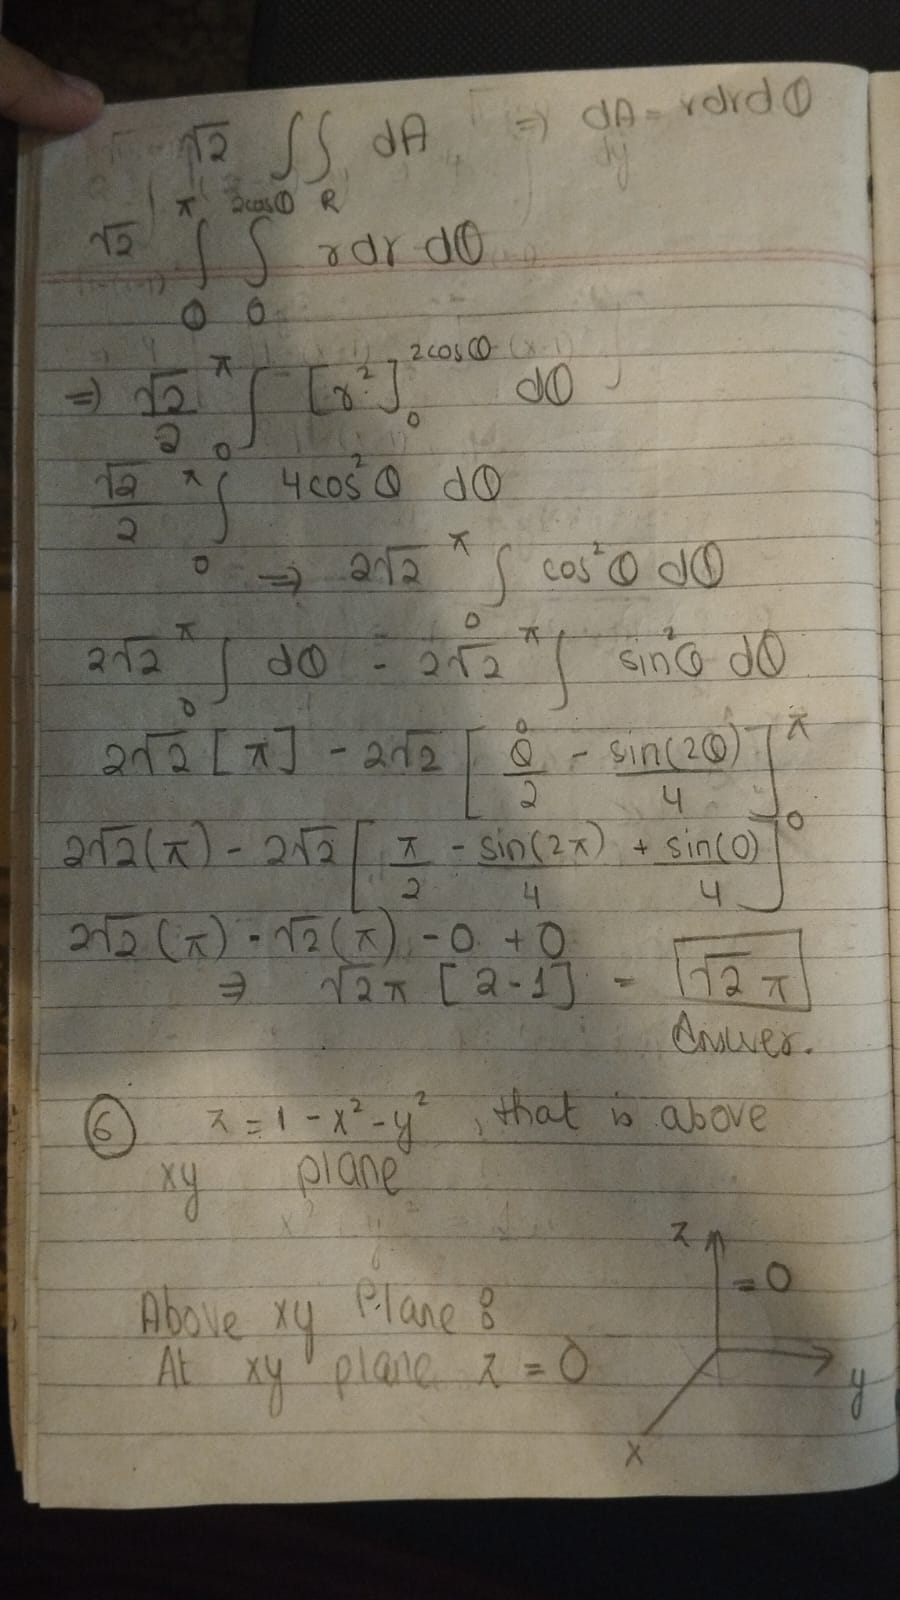 √2 ∫∫ dA ⇒ dA = rdrdθ
π 2cosθ R
√2 ∫ ∫ rdr dθ
0 0
⇒ √2/2 π∫0 [r²]0^2cosθ dθ
√2/2 π∫0 4cos²θ dθ
⇒ 2√2 π∫0 cos²θ dθ
2√2 π∫0 dθ - 2√2 π∫0 sin²θ dθ
2√2 [π] - 2√2 [θ/2 - sin(2θ)/4]π0
2√2(π) - 2√2 [π/2 - sin(2π)/4 + sin(0)/4]
2√2(π) - √2(π) - 0 + 0
⇒ √2π [2-1] = √2 π
Answer.
⑥ z = 1 - x² - y², that is above
xy plane
z
= 0
Above xy Plane :
At xy plane z = 0
y
x